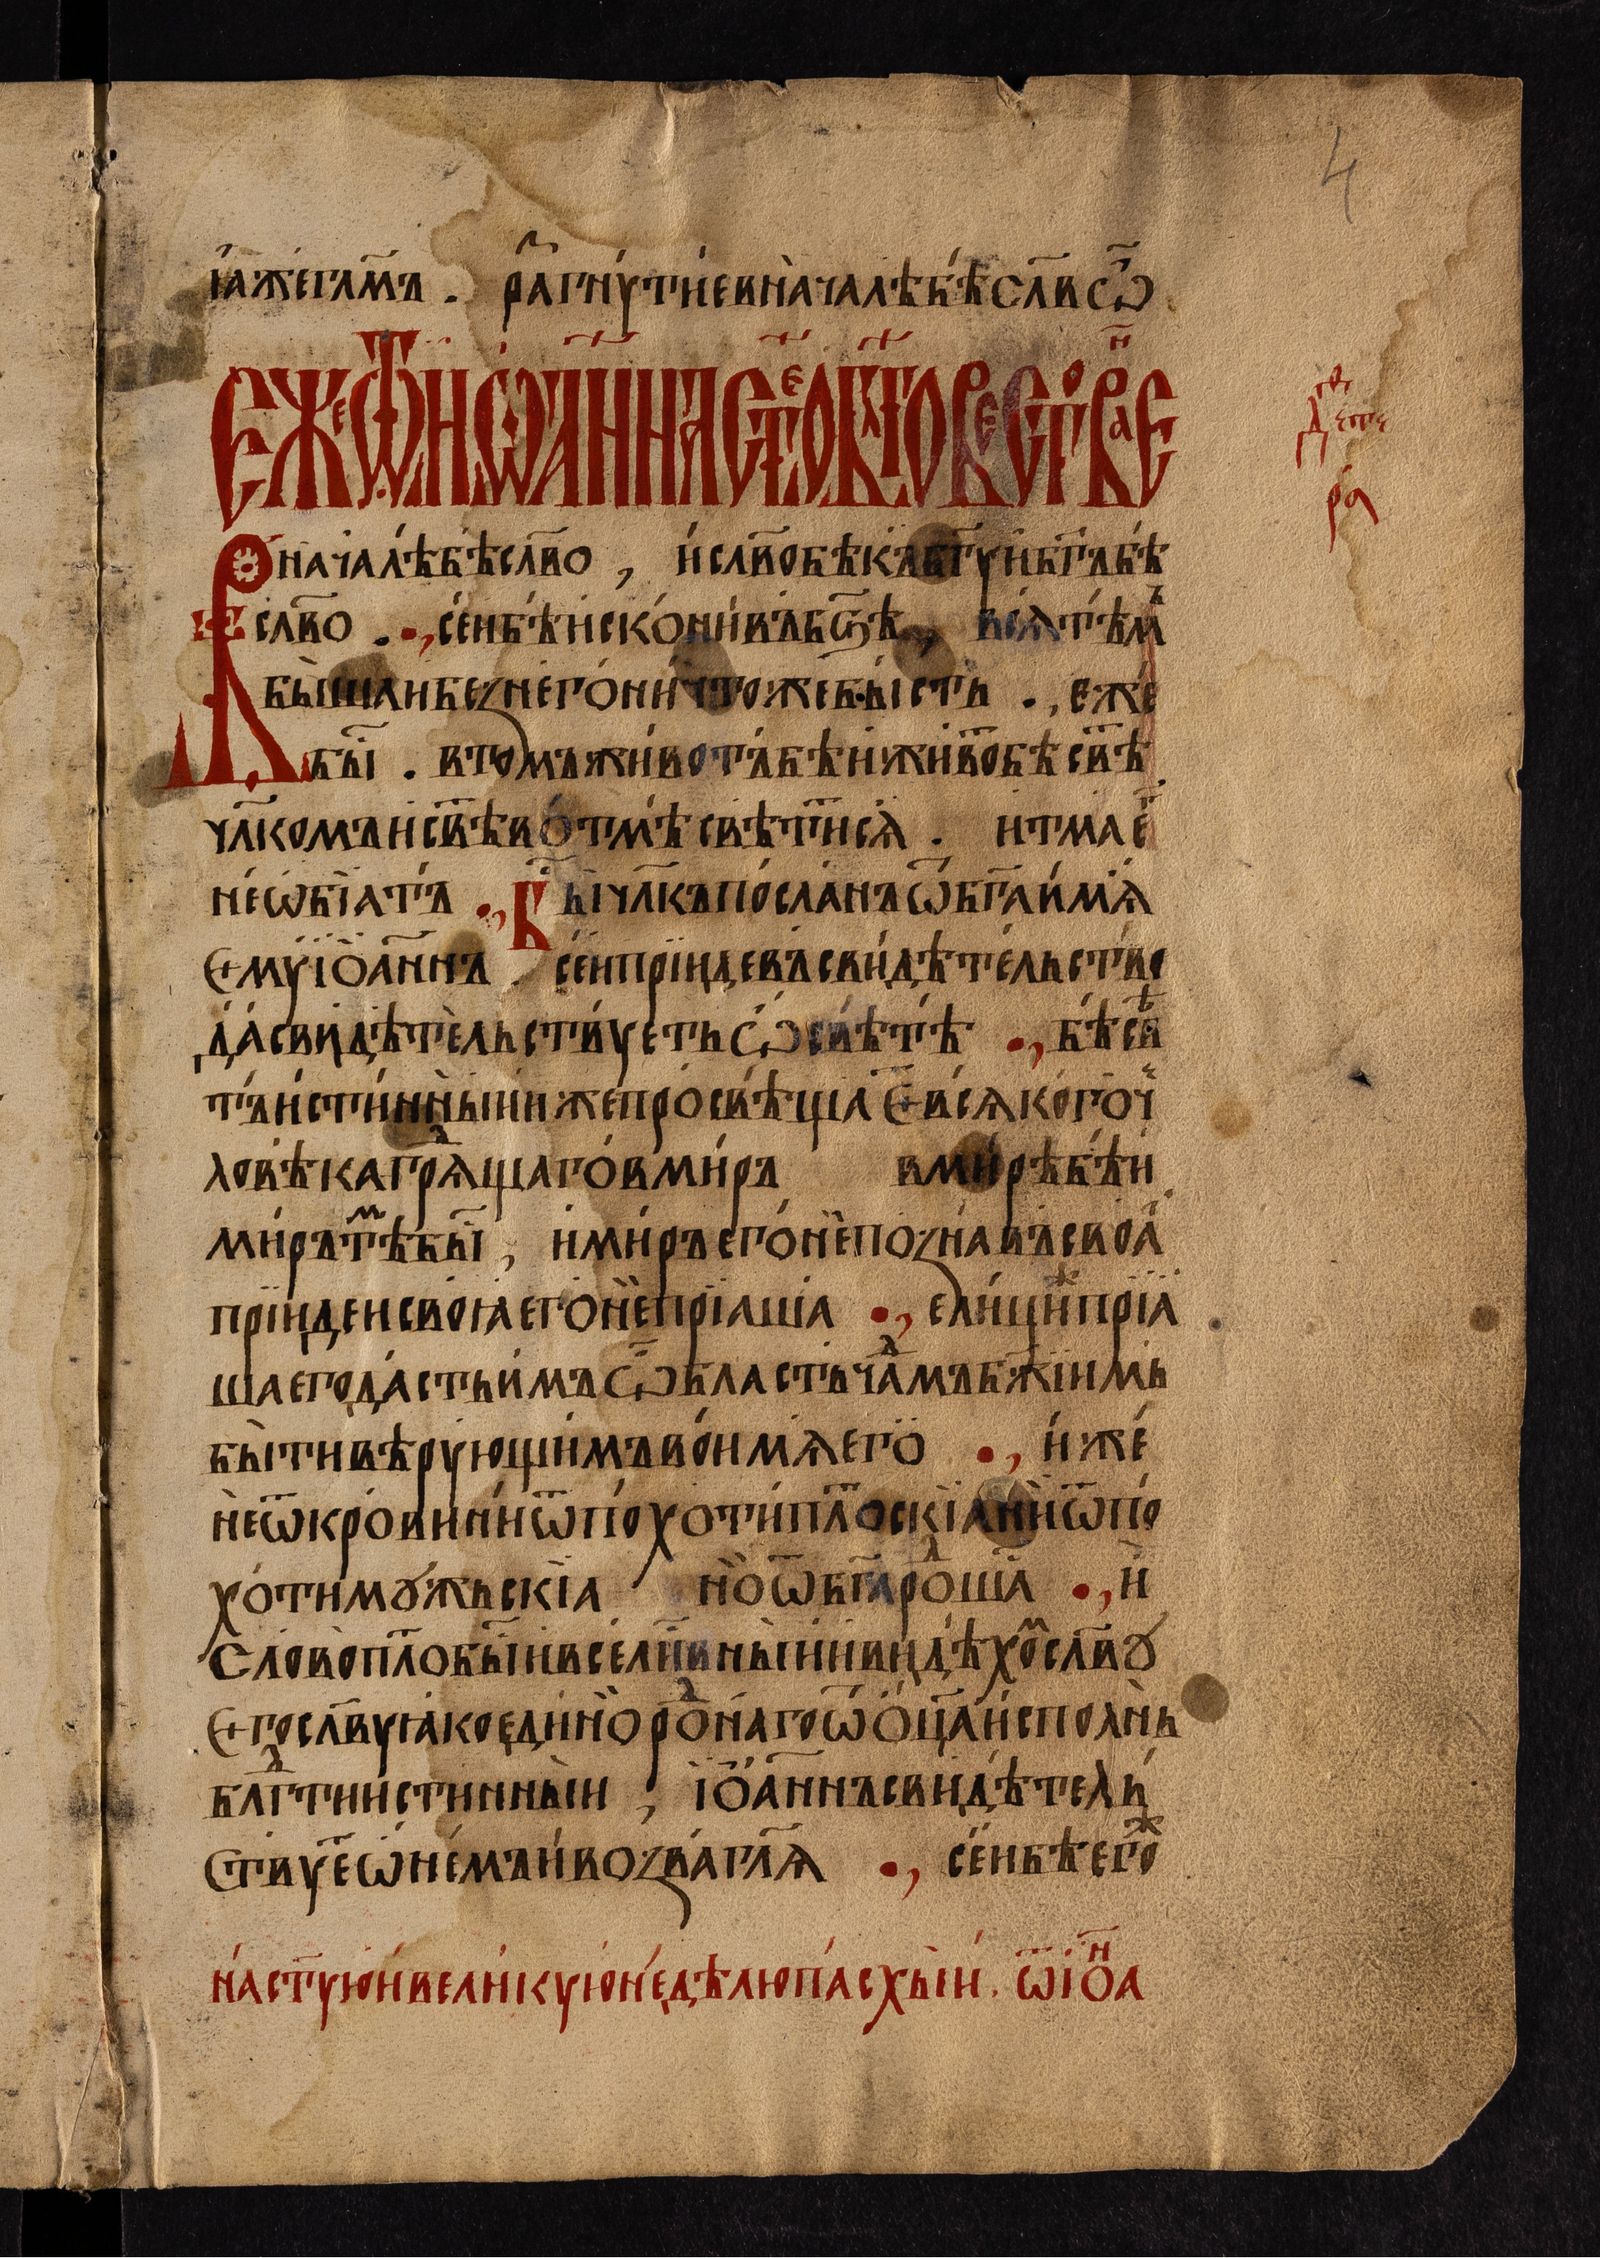 4
іа́жегл҃мъ . ра҃гну́тиевнача́лѣбѣ̀сл҃вѡ҃
еже ѿ иѡа҃нна ст҃ое бл҃говѣстворение
за
де пе
ра
Вонача́лѣбѣ̀сл҃во , и́сл҃вобѣ̀къбг҃ꙋи́бг҃ъбѣ̀
сл҃во . се́ибѣ̀искони́въбѕ҃ѣ , всѧ̀тѣ́мъ
бы̀шаибеznего́ни́чтожебы́сть . еже́
бы҃і . втомъживо́тъбѣ̀иживо҃бѣсвѣ҃
чл҃комъисвѣ҃во́тмѣ́свѣ́тисѧ . итмае҃
не́ѡбіатъ . Бы҃і чл҃къпо́сланъѿбг҃аи́мѧ
емуіѡа҃ннъ . се́ипрїидевъсвидѣ́тельство
да́свидѣ́тельствуетьѡсвѣ́тѣ . бѣ́свѣ҃
тъи́стинныиижепросвѣща҃евсѧ́когоч҃
ловѣ́кагрѧдꙋщагов̾ми́ръ вми́рѣбѣ̀и
ми́рътѣ́мбы҃і , и́ми́ръего́непоznа́въсвоа҃
прїидеисвоіа́егонепрїаша . ели́цыж҃прїіа
шаегода́стьимъѡбластьча́дмъбж҃їимь
бы́тивѣ́рующимъво́имѧего̀ . и́же́
не́ѿкро́вини́ѿпо́хотипло҃скїани́ѿпо́
хо́тимꙋжьскїа но́ѿбг҃аро́дша҃ . и́
Сло́вопл҃обы҃ивсели҃вны̀иивидѣ́хо҃мсла҃вꙋ
Его́сла҃вуіа́коединоро́днагоѿо҃ца҃испо́лнь
бл҃гтииистинныи , іѡа҃ннъсвидѣ́тель
Ствуе҃ѡне́мъи́воzва́гл҃ѧ . се́ибѣего́ж
нáст҃уюи́вели́куюне́дѣлюпа́схыи . ѿіѡа҃н